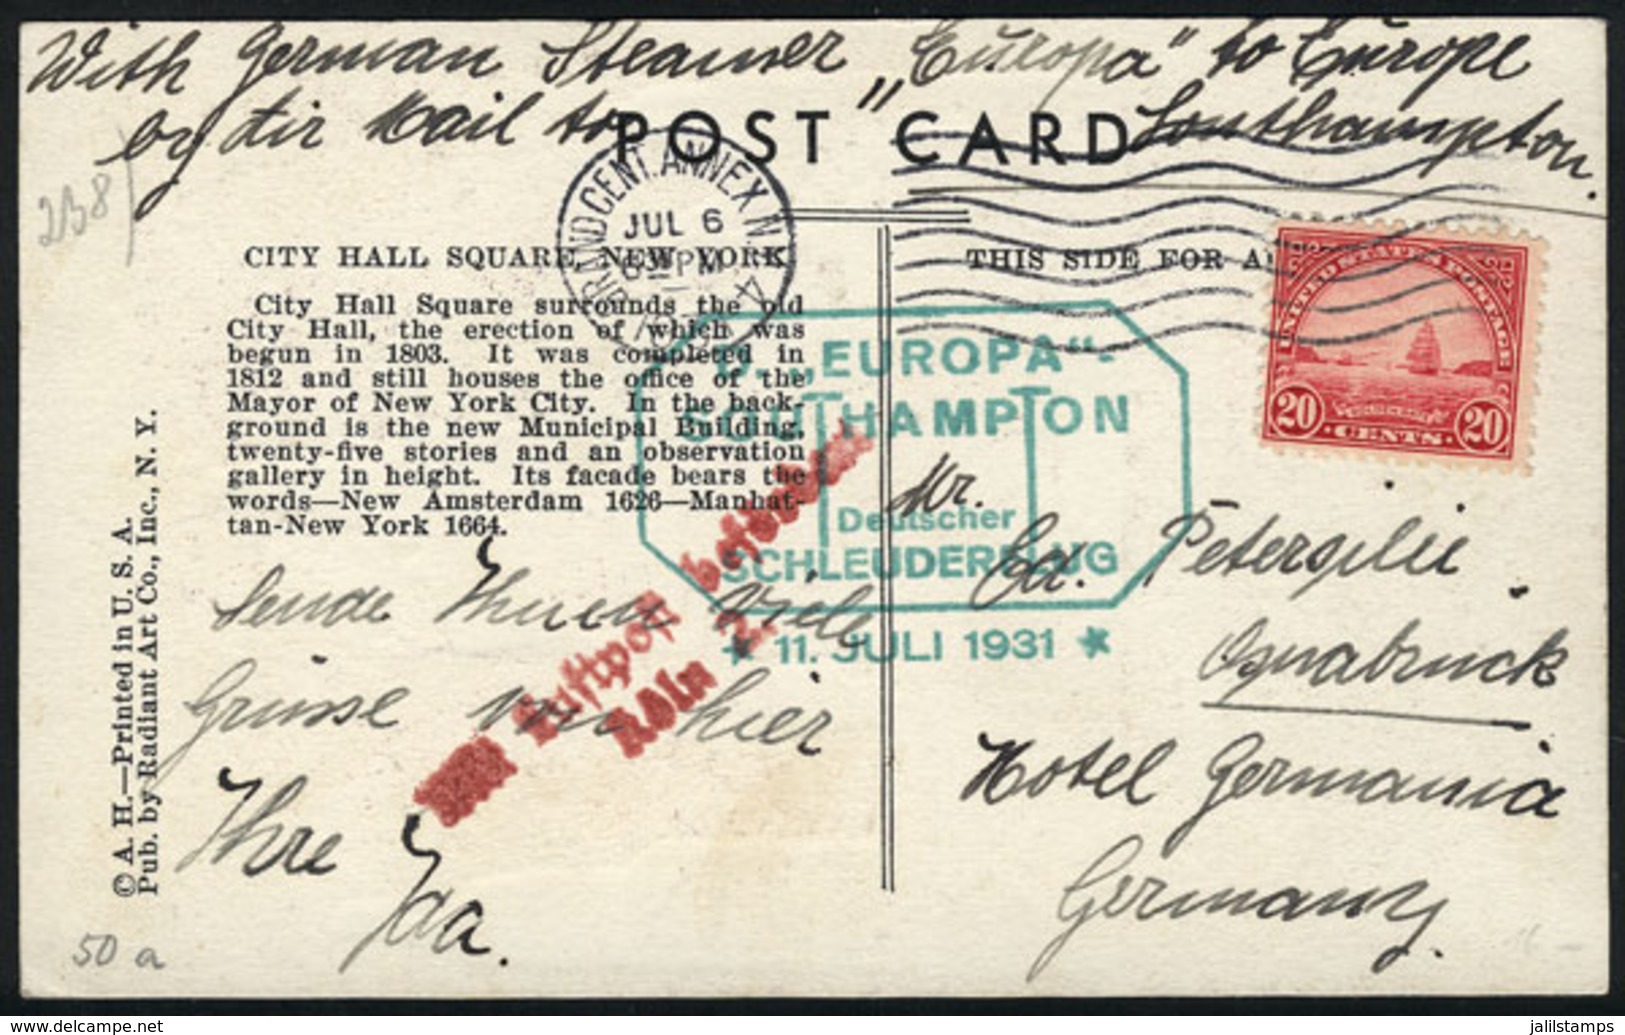 With German Steamer „Europa" to Europe
by Air Mail to Southampton.
POST CARD
238
GRAND CENT. ANNEX N.Y.
JUL 6
PM
4
CITY HALL SQUARE, NEW YORK
City Hall Square surrounds the old
City Hall, the erection of which was
begun in 1803. It was completed in
1812 and still houses the office of the
Mayor of New York City. In the back-
ground is the new Municipal Building,
twenty-five stories and an observation
gallery in height. Its facade bears the
words—New Amsterdam 1626—Manhat-
tan-New York 1664.
© A. H.—Printed in U. S. A.
Pub. by Radiant Art Co., Inc., N. Y.
Sende Ihnen Viele
Grüsse von hier
Ihre
50 a
D. „EUROPA"-
SOUTHAMPTON
Deutscher
SCHLEUDERFLUG
* 11. JULI 1931 *
Luftpost befördert
Köln 2.
THIS SIDE FOR A
UNITED STATES POSTAGE
20 CENTS 20
Mr.
Ed. Petersilie
Osnabruck
Hotel Germania
Germany.
jalilstamps
www.delcampe.net